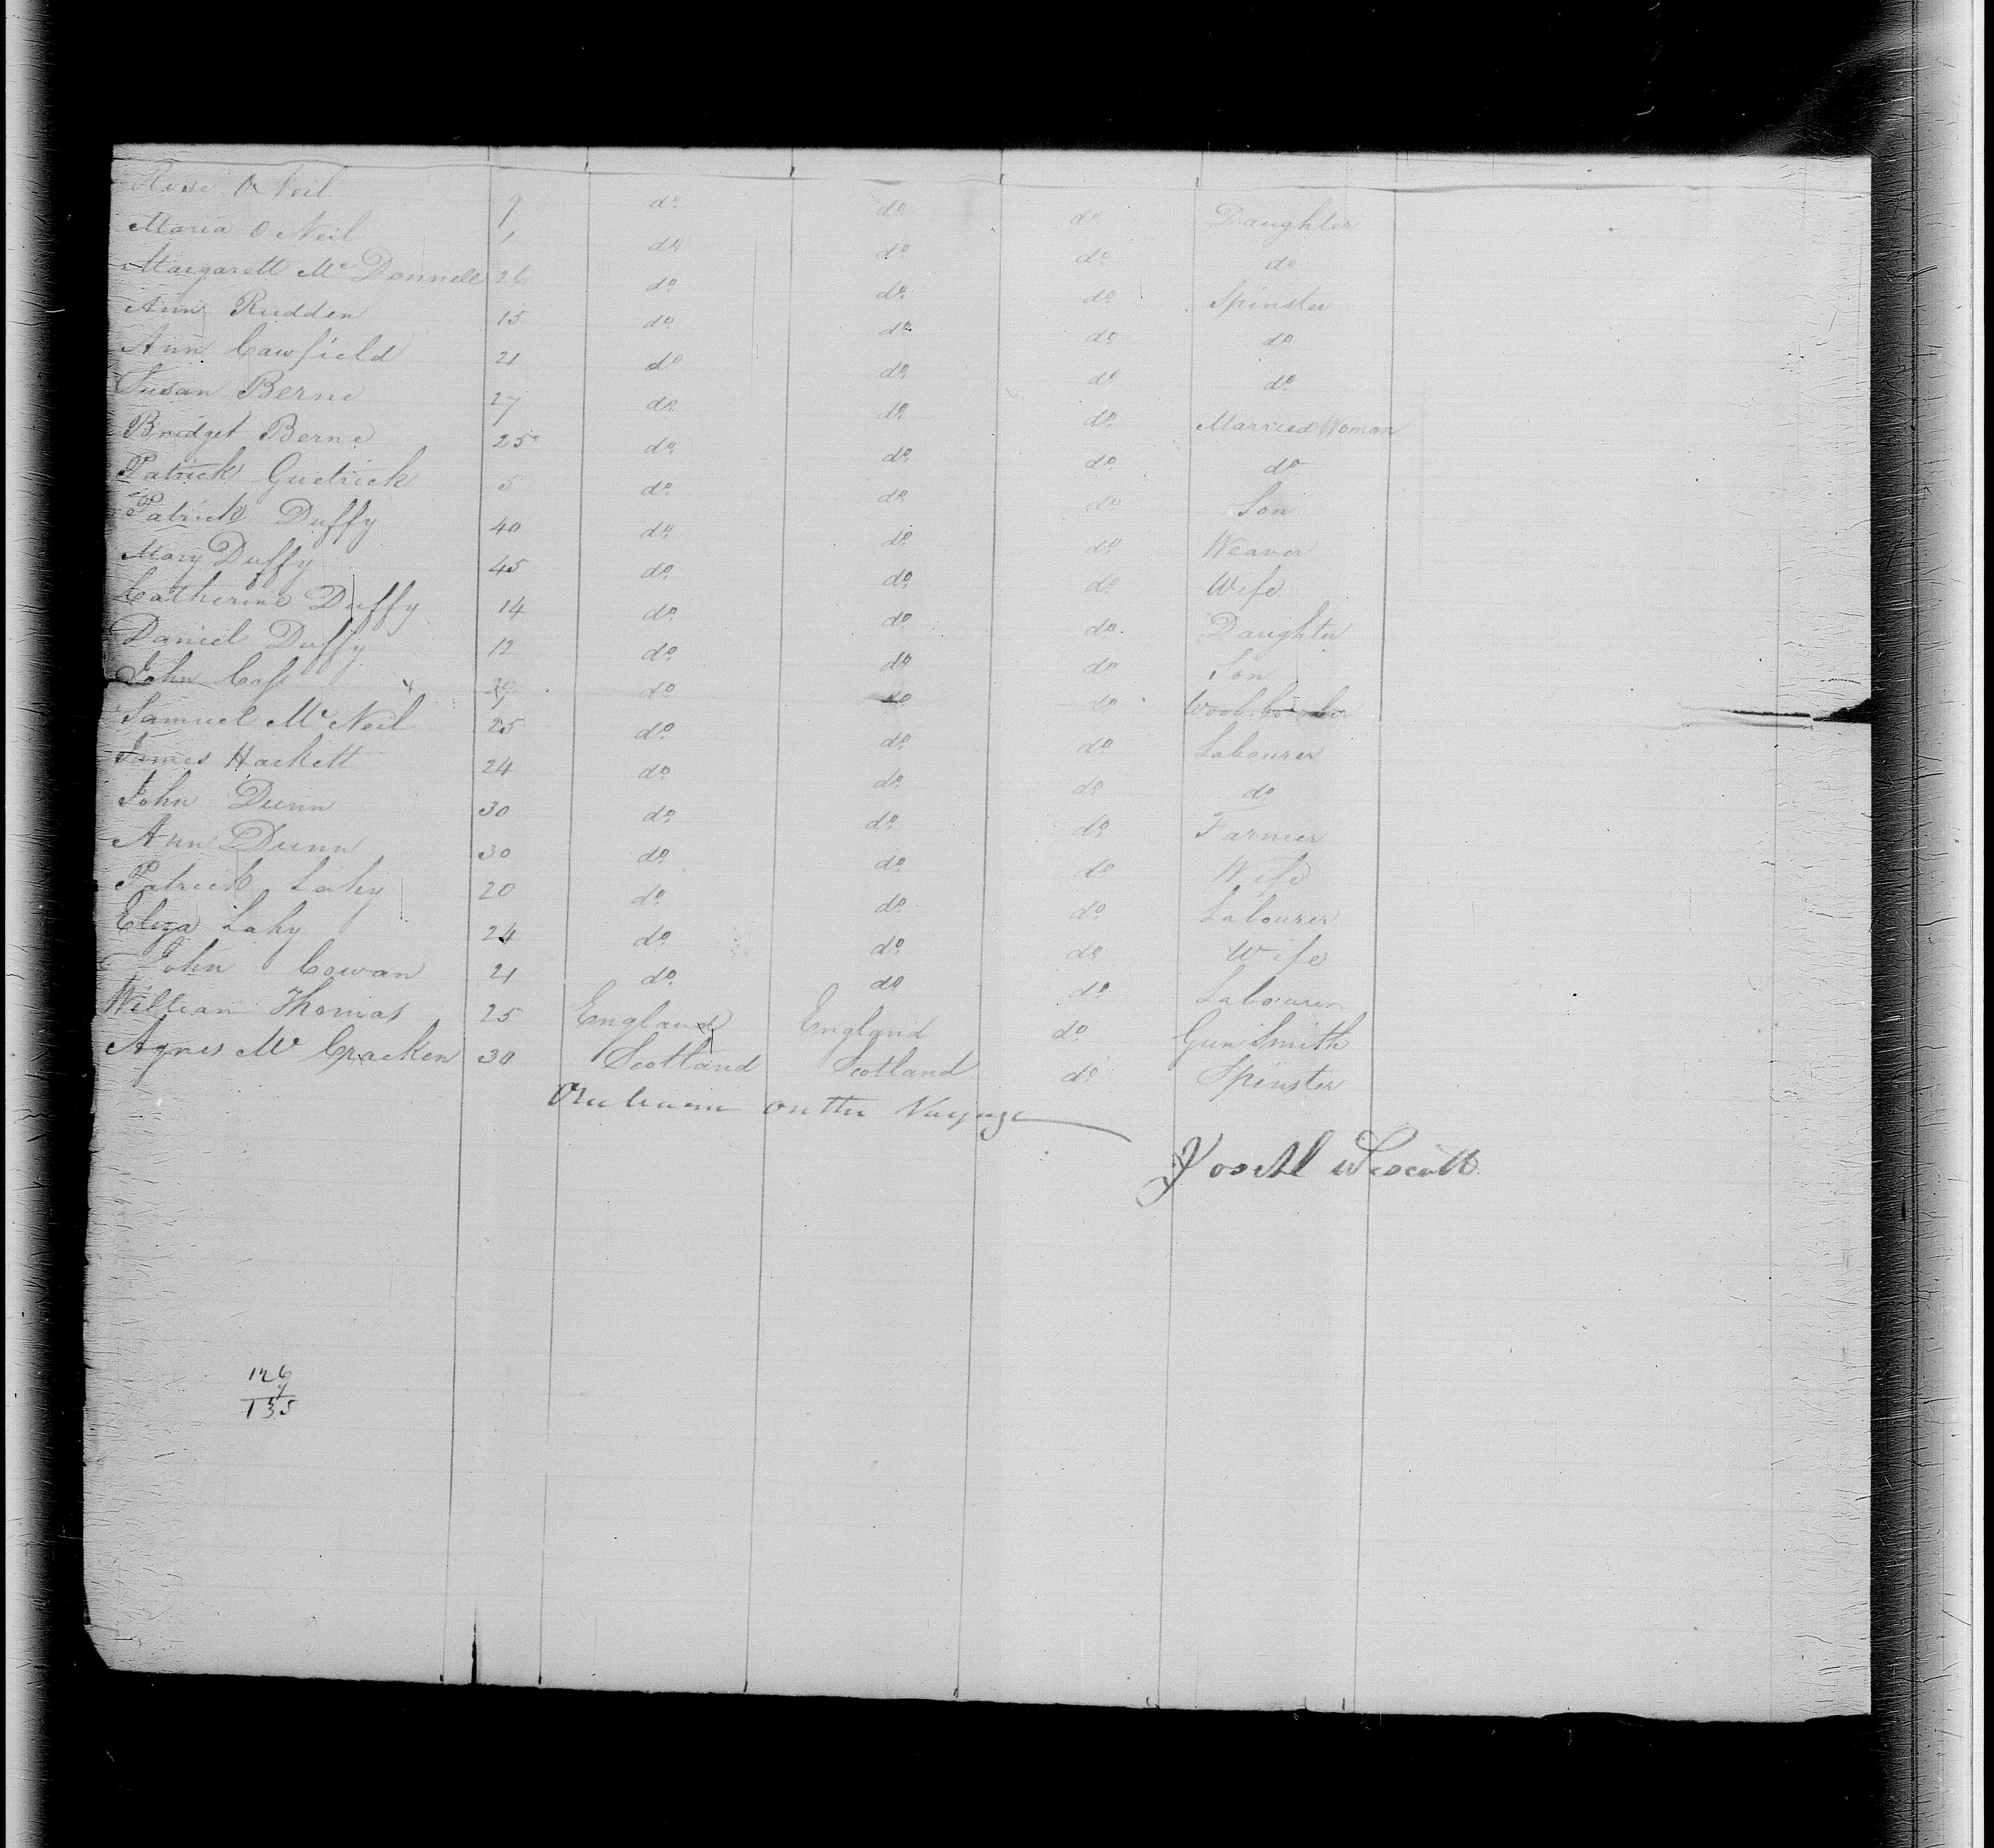 Rose O Neil 9 do do do Daughter
Maria O Neil 1 do do do do
Margarett Mc Donnell 26 do do do Spinster
Ann Rudden 15 do do do do
Ann Cawfield 21 do do do do
Susan Berne 27 do do do Married Woman
Bridget Berne 25 do do do do
Patrick Guetrick 5 do do do Son
Patrick Duffy 40 do do do Weaver
Mary Duffy 45 do do do Wife
Catherine Duffy 14 do do do Daughter
Daniel Duffy 12 do do do Son
John do do do
Samuel Mc Neil 25 do do do Labourer
James Hackett 24 do do do do
John Dunn 30 do do do Farmer
Ann Dunn 30 do do do Wife
Patrick Lahy 20 do do do Labourer
Eliza Lahy 24 do do do Wife
John Cowan 21 do do do Labourer
William Thomas 25 England England do Gun Smith
Agnes Mc Cracken 30 Scotland Scotland do Spinster
on the Voyage
126
9
135